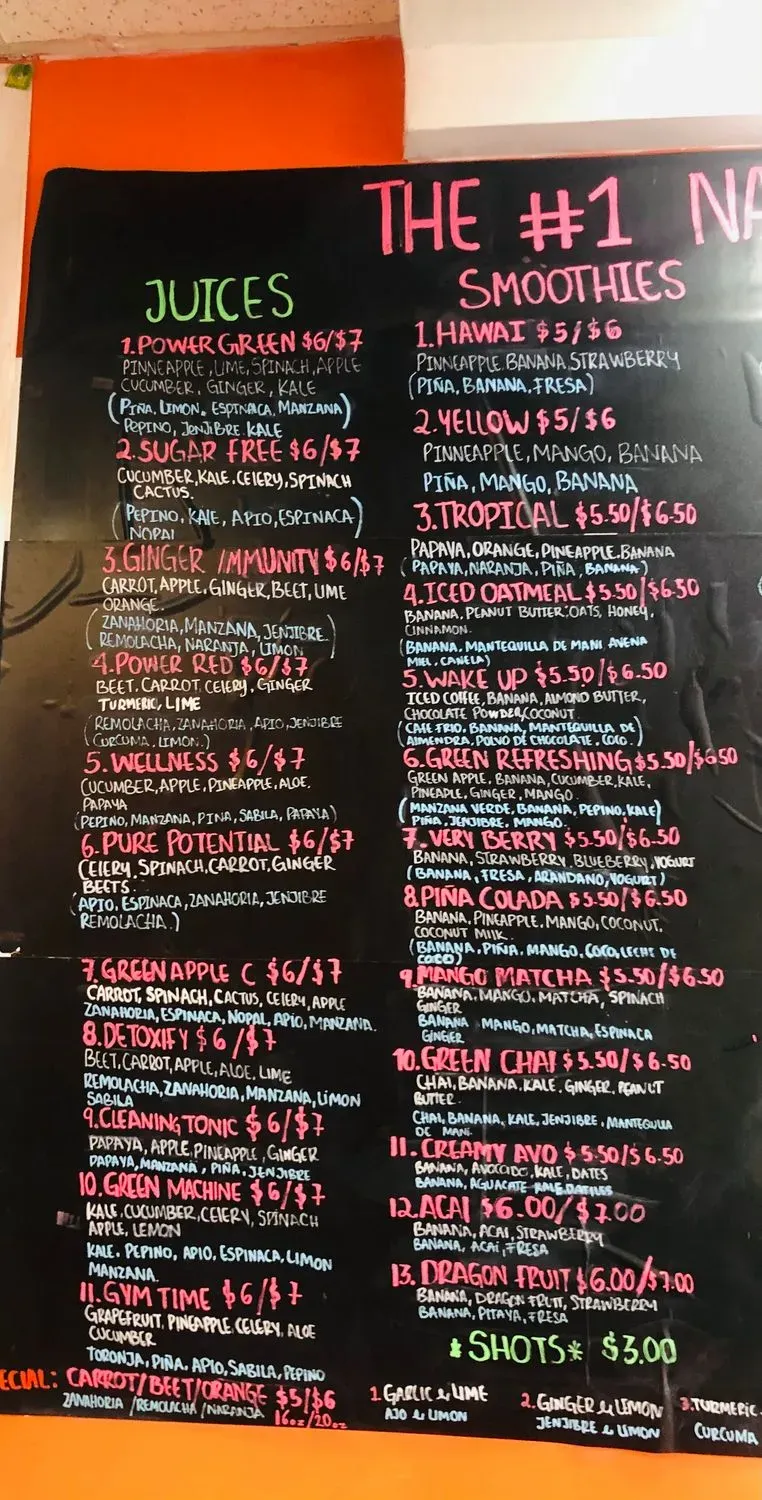 THE #1 NA
JUICES
1. POWER GREEN $6/$7
PINNEAPPLE, LIME, SPINACH, APPLE
CUCUMBER, GINGER, KALE
(PIÑA, LIMON, ESPINACA, MANZANA)
PEPINO, JENJIBRE. KALE
2. SUGAR FREE $6/$7
CUCUMBER, KALE, CELERY, SPINACH
CACTUS.
(PEPINO, KALE, APIO, ESPINACA)
NOPAL
3. GINGER IMMUNITY $6/$7
CARROT, APPLE, GINGER, BEET, LIME
ORANGE.
(ZANAHORIA, MANZANA, JENJIBRE.
REMOLACHA, NARANJA, LIMON)
4. POWER RED $6/$7
BEET, CARROT, CELERY, GINGER
TURMERIC, LIME
(REMOLACHA, ZANAHORIA, APIO, JENJIBRE
CURCUMA, LIMON.)
5. WELLNESS $6/$7
CUCUMBER, APPLE, PINEAPPLE, ALOE,
PAPAYA
(PEPINO, MANZANA, PINA, SABILA, PAPAYA)
6. PURE POTENTIAL $6/$7
CELERY, SPINACH, CARROT, GINGER
BEETS.
(APIO, ESPINACA, ZANAHORIA, JENJIBRE
REMOLACHA.)
7. GREEN APPLE C $6/$7
CARROT, SPINACH, CACTUS, CELERY, APPLE
ZANAHORIA, ESPINACA, NOPAL, APIO, MANZANA.
8. DETOXIFY $6/$7
BEET, CARROT, APPLE, ALOE, LIME
REMOLACHA, ZANAHORIA, MANZANA, LIMON
SABILA
9. CLEANING TONIC $6/$7
PAPAYA, APPLE, PINEAPPLE, GINGER
PAPAYA, MANZANA, PIÑA, JENJIBRE
10. GREEN MACHINE $6/$7
KALE, CUCUMBER, CELERY, SPINACH
APPLE, LEMON
KALE, PEPINO, APIO, ESPINACA, LIMON
MANZANA.
11. GYM TIME $6/$7
GRAPEFRUIT, PINEAPPLE, CELERY, ALOE
CUCUMBER
TORONJA, PIÑA, APIO, SABILA, PEPINO
ECIAL: CARROT/BEET/ORANGE $5/$6
ZANAHORIA/REMOLACHA/NARANJA 16oz/20oz
SMOOTHIES
1. HAWAI $5/$6
PINNEAPPLE, BANANA, STRAWBERRY
(PIÑA, BANANA, FRESA)
2. YELLOW $5/$6
PINNEAPPLE, MANGO, BANANA
PIÑA, MANGO, BANANA
3. TROPICAL $5.50/$6.50
PAPAYA, ORANGE, PINEAPPLE, BANANA
(PAPAYA, NARANJA, PIÑA, BANANA)
4. ICED OATMEAL $5.50/$6.50
BANANA, PEANUT BUTTER, OATS, HONEY,
CINNAMON.
(BANANA, MANTEQUILLA DE MANI, AVENA
MIEL, CANELA)
5. WAKE UP $5.50/$6.50
ICED COFFEE, BANANA, ALMOND BUTTER,
CHOCOLATE POWDER, COCONUT.
(CAFE FRIO, BANANA, MANTEQUILLA DE
ALMENDRA, POLVO DE CHOCOLATE, COCO.)
6. GREEN REFRESHING $5.50/$6.50
GREEN APPLE, BANANA, CUCUMBER, KALE,
PINEAPLE, GINGER, MANGO.
(MANZANA VERDE, BANANA, PEPINO, KALE)
PIÑA, JENJIBRE, MANGO.
7. VERY BERRY $5.50/$6.50
BANANA, STRAWBERRY, BLUEBERRY, YOGURT
(BANANA, FRESA, ARANDANO, YOGURT)
8. PIÑA COLADA $5.50/$6.50
BANANA, PINEAPPLE, MANGO, COCONUT,
COCONUT MILK.
(BANANA, PIÑA, MANGO, COCO, LECHE DE
COCO)
9. MANGO MATCHA $5.50/$6.50
BANANA, MANGO, MATCHA, SPINACH
GINGER
BANANA MANGO, MATCHA, ESPINACA
GINGER
10. GREEN CHAI $5.50/$6.50
CHAI, BANANA, KALE, GINGER, PEANUT
BUTTER.
CHAI, BANANA, KALE, JENJIBRE, MANTEQUILLA
DE MANI.
11. CREAMY AVO $5.50/$6.50
BANANA, AVOCODO, KALE, DATES
BANANA, AGUACATE KALE, DATILES
12. ACAI $6.00/$7.00
BANANA, ACAI, STRAWBERRY
BANANA, ACAI, FRESA
13. DRAGON FRUIT $6.00/$7.00
BANANA, DRAGON FRUIT, STRAWBERRY
BANANA, PITAYA, FRESA
*SHOTS* $3.00
1. GARLIC & LIME
AJO & LIMON
2. GINGER & LIMON
JENJIBRE & LIMON
3. TURMERIC
CURCUMA